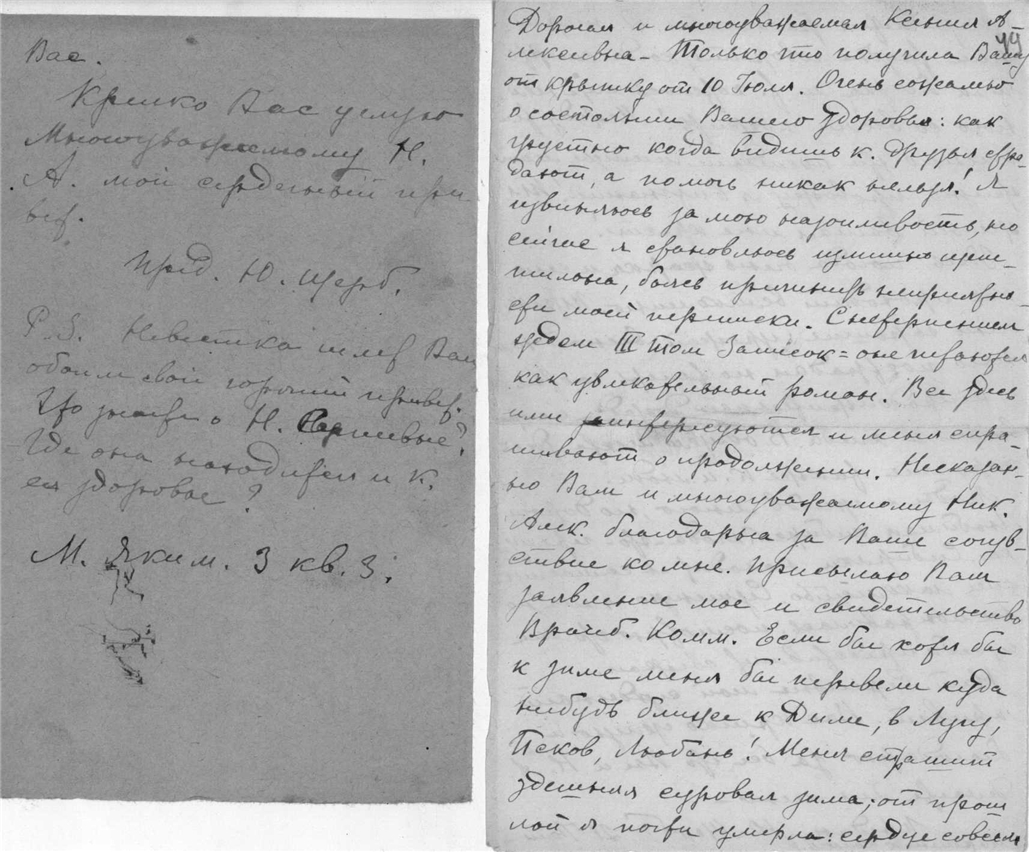 Вас.
Крепко Вас целую
Многоуважаемому Н.
А. мой сердечный при-
вет.
Пред. Ю. Щерб.
P.S. Невестка шлет Вам
обоим свой горячий привет.
Что знаете о Н.
Где она находится и к.
ея здоровье?
М. Яким. 3 кв. 3.
44
Дорогая и многоуважаемая Ксения А-
лексевна – Только что получила Вашу
от крытку от 10 Июля. Очень сожалею
о состоянии Вашего здоровья: как
грустно когда видишь к. друзья стра-
дают, а помочь никак нельзя! Я
извиняюсь за мою назойливость, но
сейчас я становлюсь излишне щепе-
тильна, боясь причинить неприятно-
сти моей переписки. С нетерпением
ждем III том Записок = оне читаются
как увлекательный роман. Все здесь
ими интересуются и меня спра-
шивают о продолжении. Несказан-
но Вам и многоуважаемому Ник.
Алк. благодарна за Ваше сочув-
ствие ко мне. Присылаю Вам
заявление мое и свидетельство
Врачеб. Комм. Если бы хотя бы
к зиме меня бы перевели куда
нибудь ближе к Диме, в Лугу,
Псков, Любань! Меня страшит
здешняя суровая зима; от прош
лой я почти умерла: сердце совсем